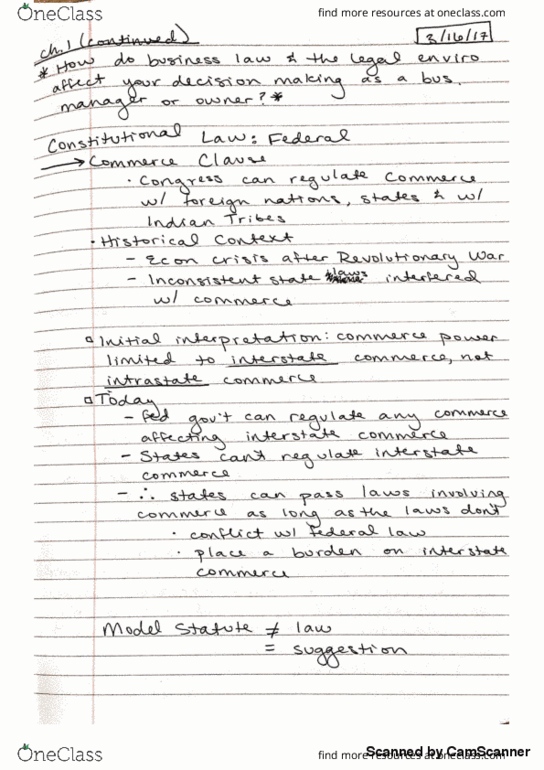 OneClass
find more resources at oneclass.com
ch.1 (continued)
3/16/17
*How do business law & the legal enviro
affect your decision making as a bus.
manager or owner?*
Constitutional Law: Federal
→ Commerce Clause
· Congress can regulate commerce
w/ foreign nations, states & w/
Indian Tribes
· Historical Context
- Econ crisis after Revolutionary War
- Inconsistent state laws interfered
w/ commerce
▫ Initial interpretation: commerce power
limited to interstate commerce, not
intrastate commerce
▫ Today
- Fed gov't can regulate any commerce
affecting interstate commerce
- States can't regulate interstate
commerce
- ∴ states can pass laws involving
commerce as long as the laws don't
· conflict w/ Federal law
· place a burden on interstate
commerce
Model Statute ≠ law
= suggestion
OneClass
find more resources at oneclass.com
Scanned by CamScanner